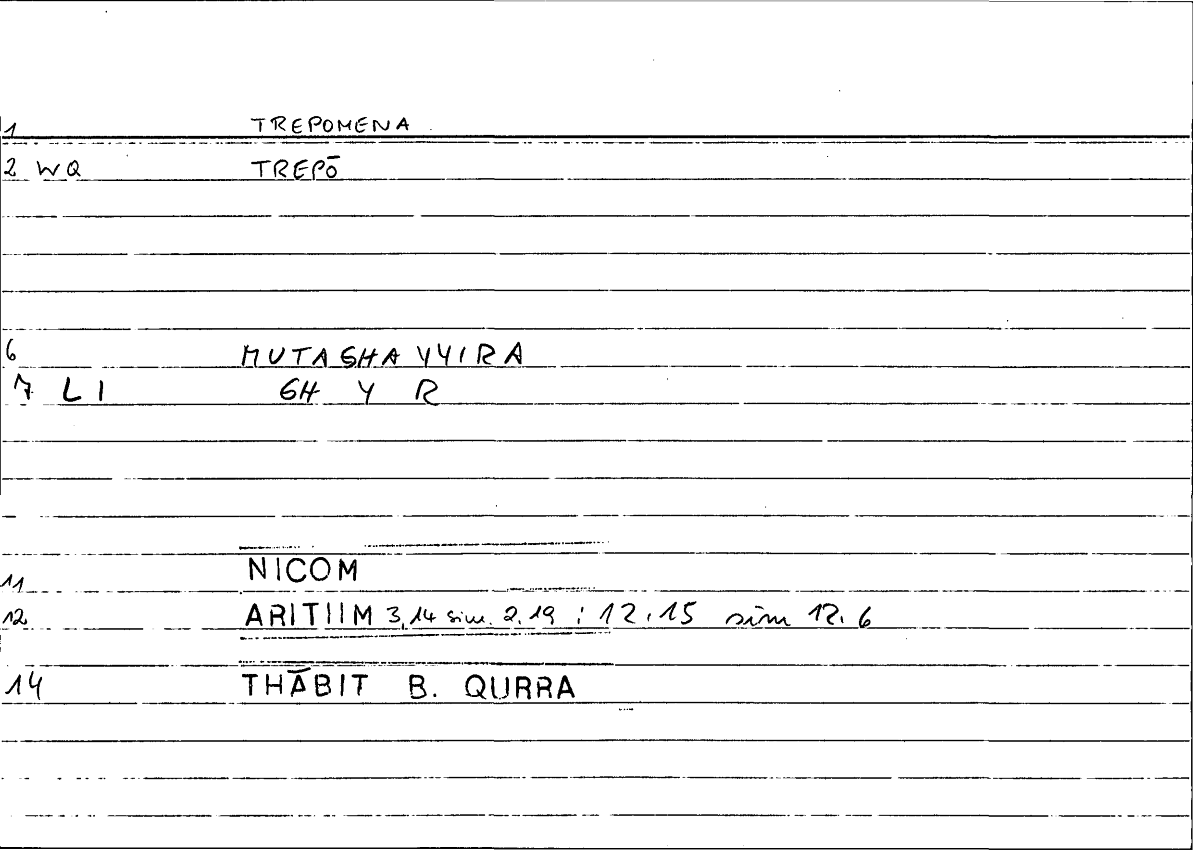 1 TREPOMENA
2 WQ TREPŌ
6 MUTAGHAYYIRA
7 LI GH Y R
11 NICOM
12 ARITIIM 3,14 sim. 2.19 ; 12.15 sim 12.6
14 THĀBIT B. QURRA